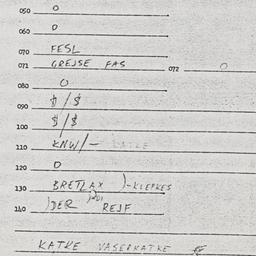 050 0
060 0
070 FESL
071 GREJSE FAS 072 0
080 0
090 $/$
100 $/$
110 KNW/-
120 0
130 BRETLAX )-KLEPKES
140 )DER REJF
KATKE VASERKATKE